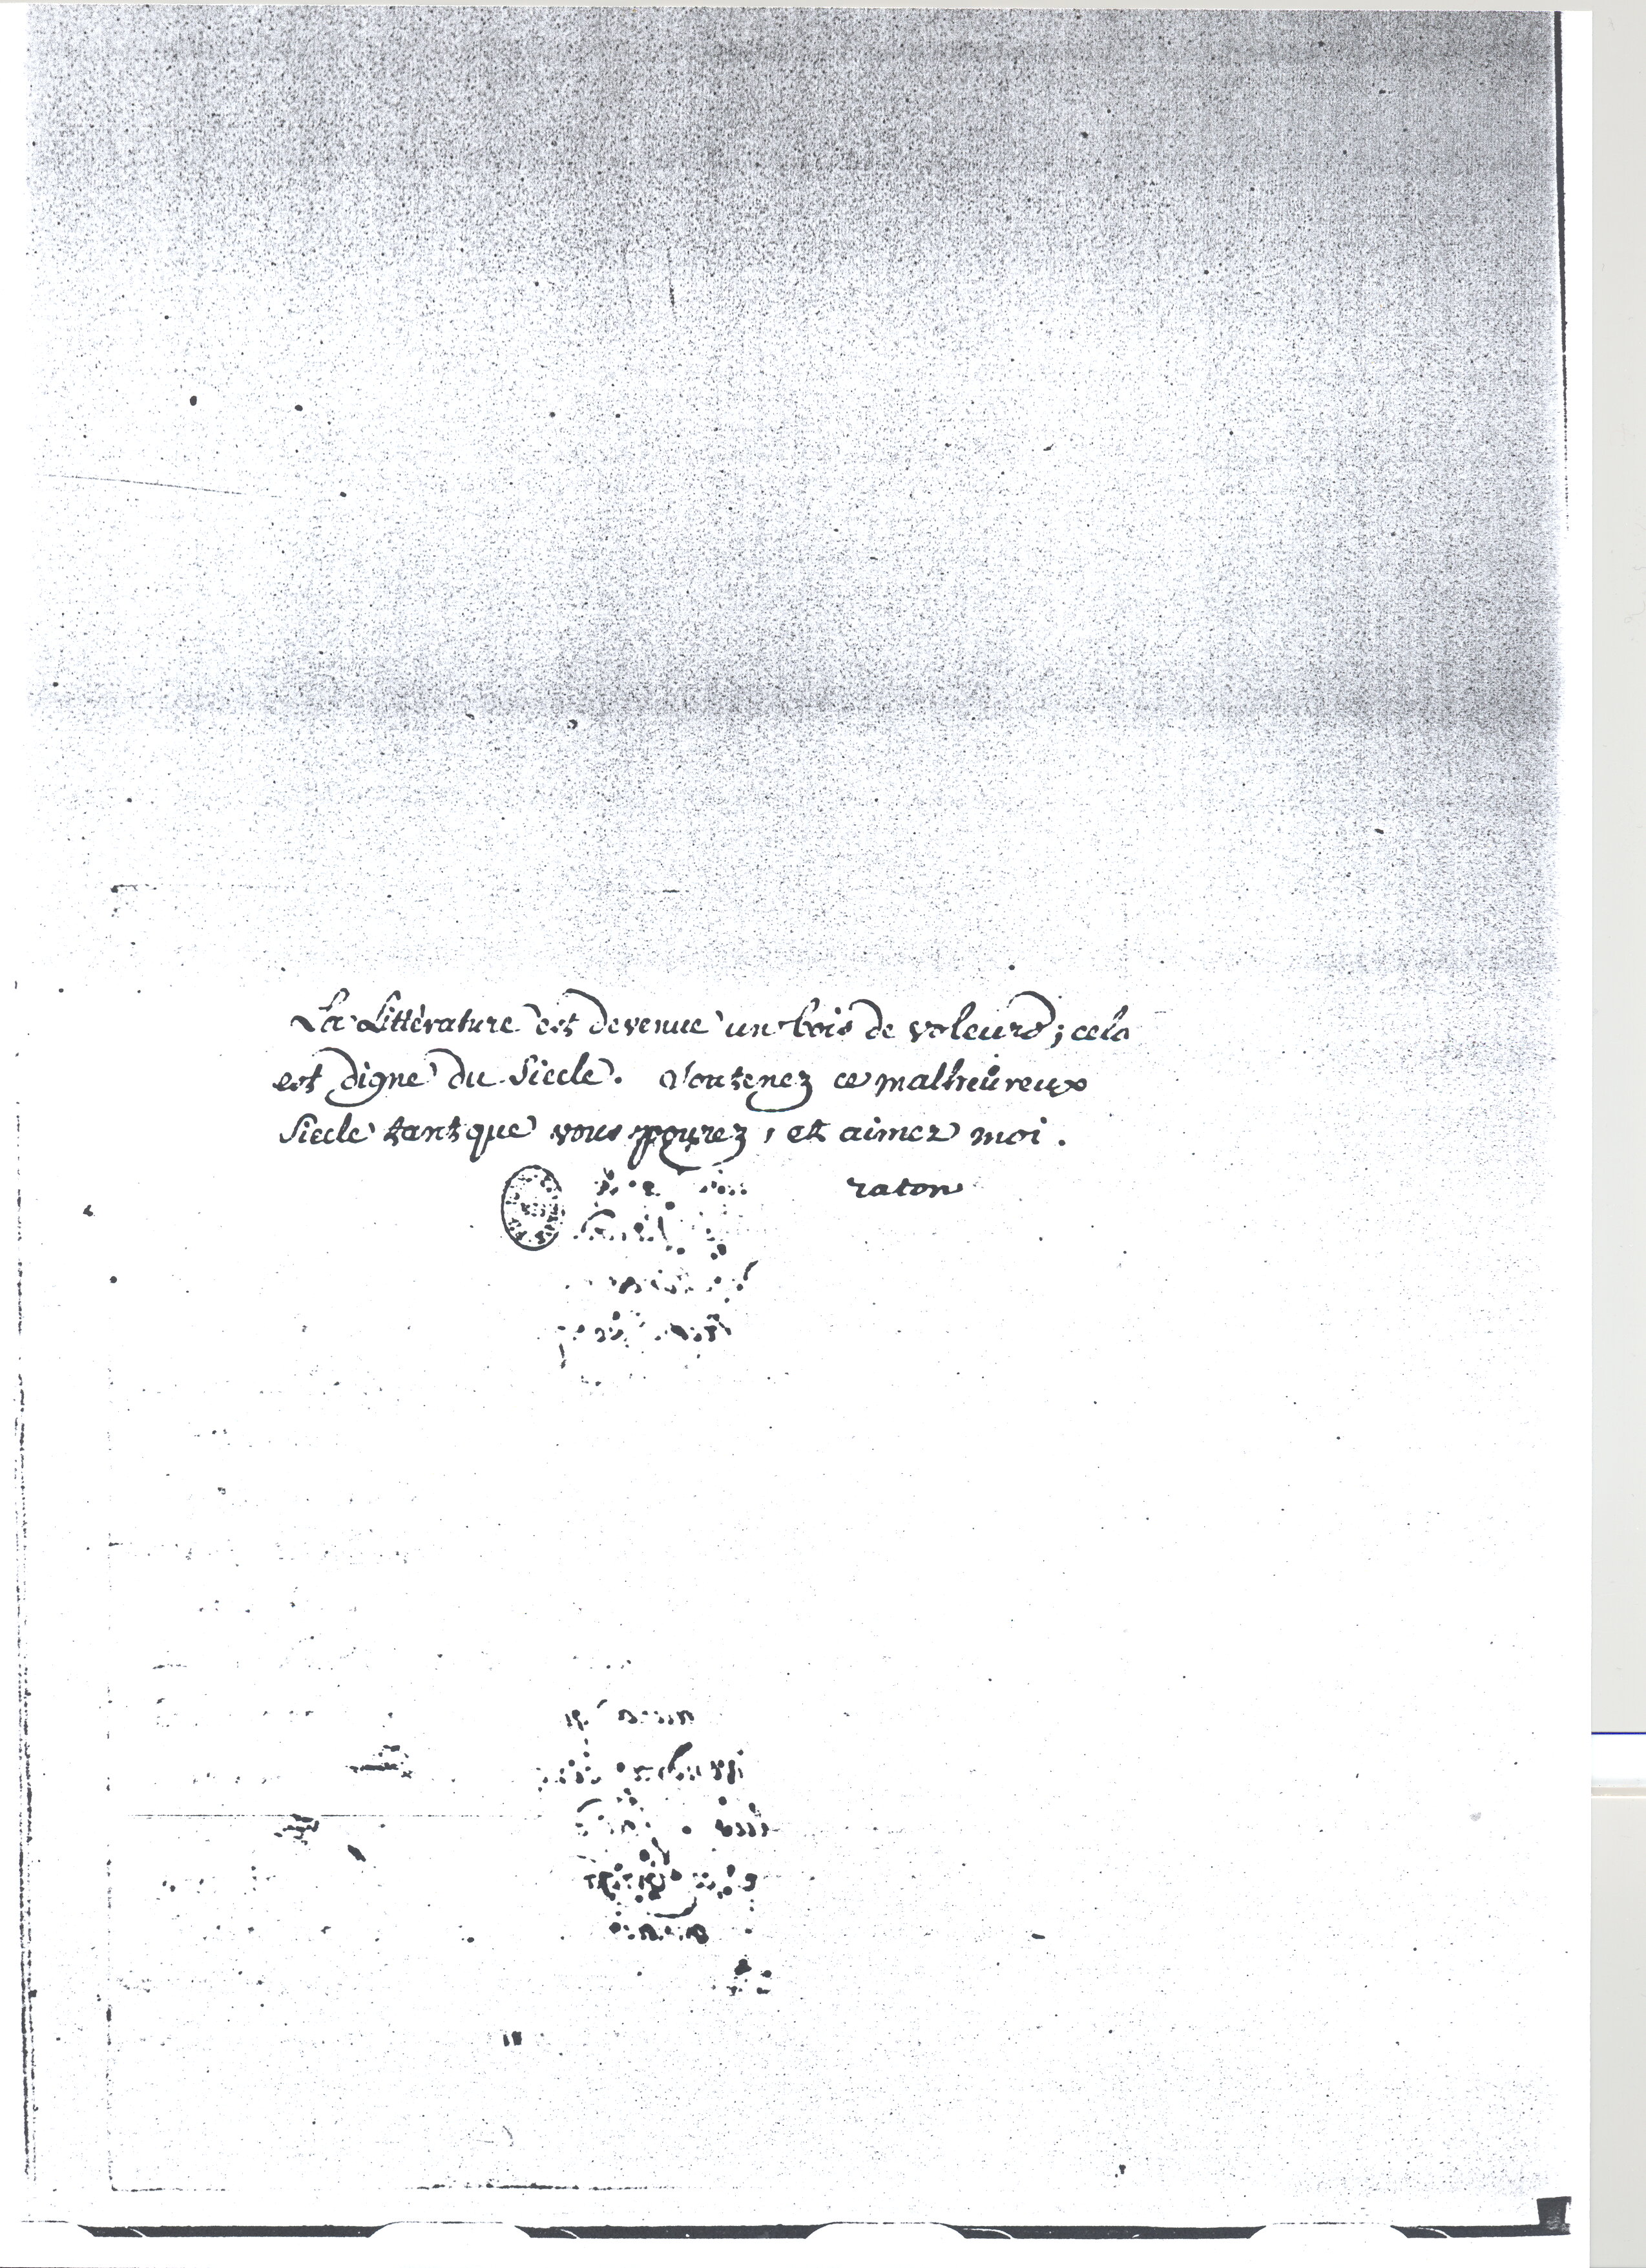 La Littérature est devenue un bois de voleurs ; cela
est digne du Siecle. Soutenez ce malheureux
Siecle tant que vous pourez, et aimez moi.
raton